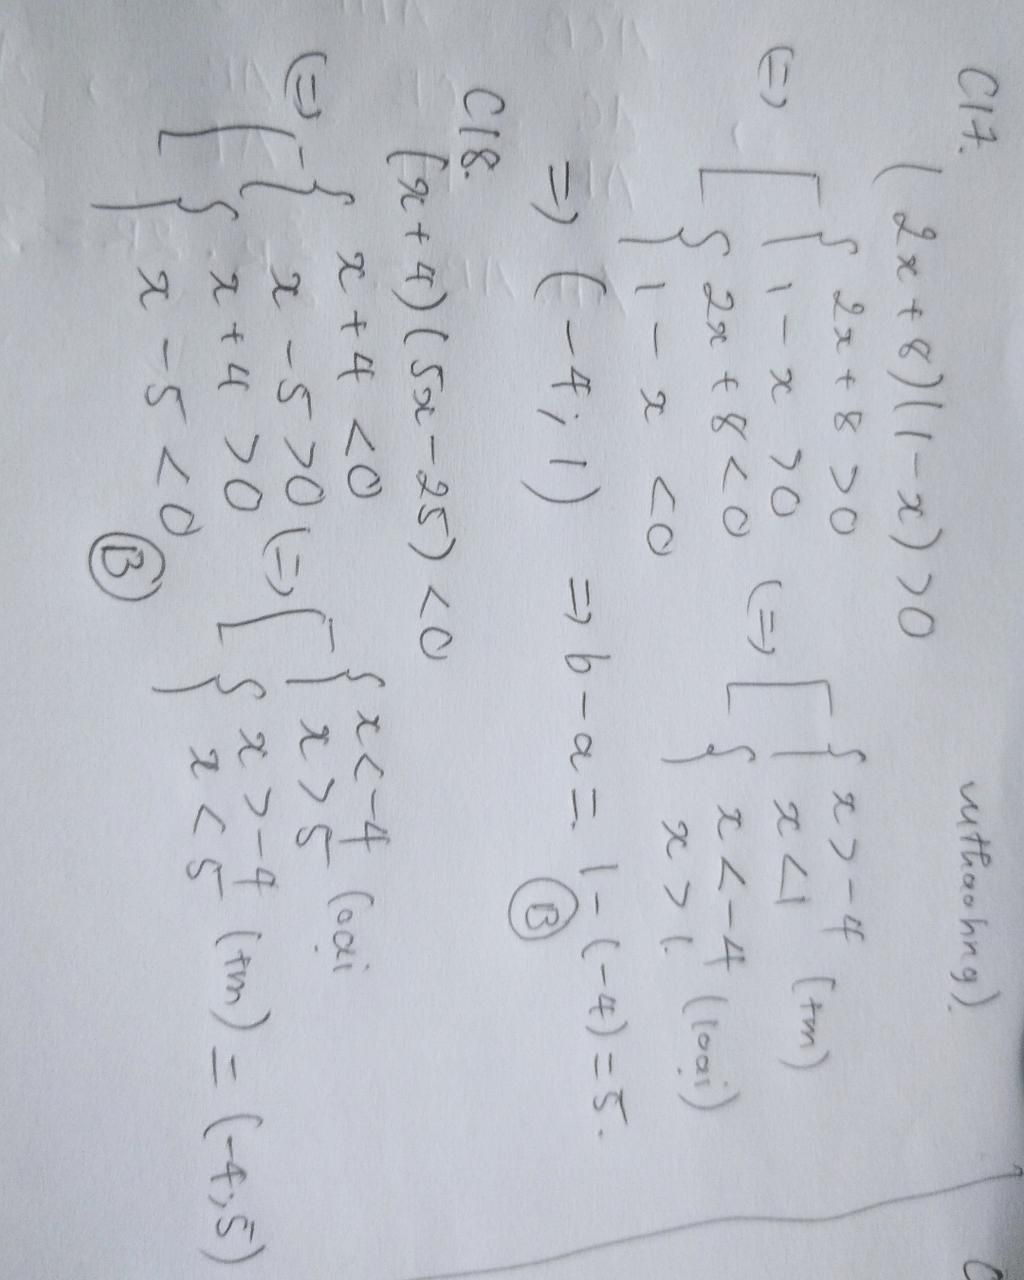 C17.
(2x+8)(1-x)>0
vuthaohng).
(=) [ { 2x+8>0
1-x>0
{ 2x+8<0
1-x<0
(=) [ { x>-4
x<1 (tm)
{ x<-4
x>1. (loại)
=) (-4; 1) => b-a= 1-(-4)=5.
B
C18.
(x+4)(5x-25)<0
(=) [ { x+4<0
x-5>0
{ x+4>0
x-5<0
(=) [ { x<-4
x>5 (oại
{ x>-4
x<5 (tm) = (-4;5)
B